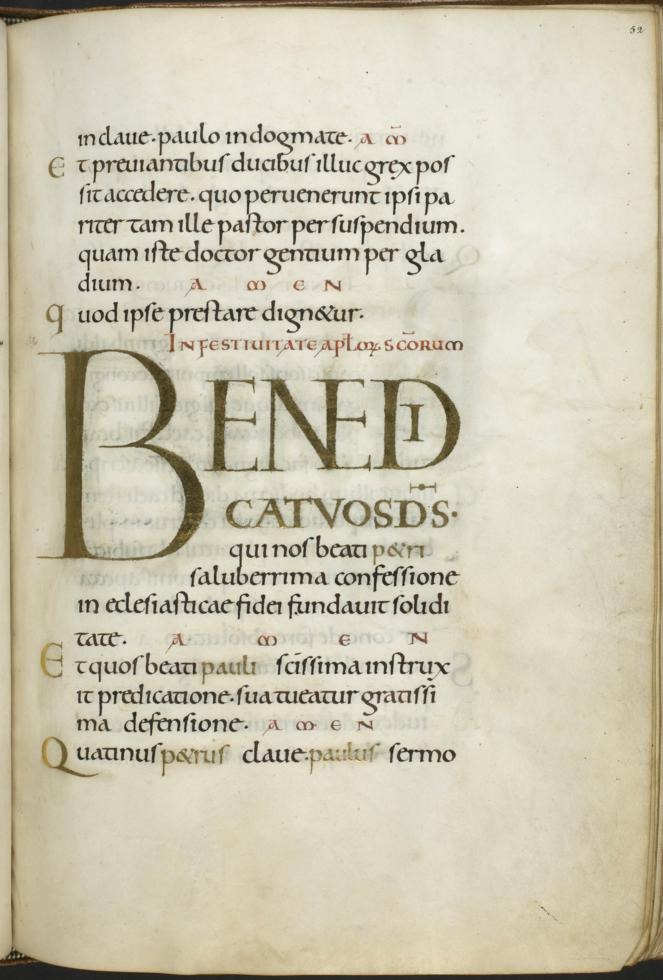 52
in claue · paulo in dogmate · A M̄
Et preuiantibus ducibus illuc grex pos
sit accedere · quo peruenerunt ipsi pa
riter tam ille pastor per suspendium ·
quam iste doctor gentium per gla
dium · A M E N
Quod ipse prestare dign&ur ·
IN FESTIUITATE APŁOꝜ · SC̄ORUM
BENEDI
CAT VOS D̄S ·
qui nos beati p&ri
saluberrima confessione
in eclesiasticae fidei fundauit solidi
tate · A M E N
Et quos beati pauli sc̄issima instrux
it predicatione · sua tueatur gratissi
ma defensione · A M E N
Quatinus p&rus claue · paulus sermo